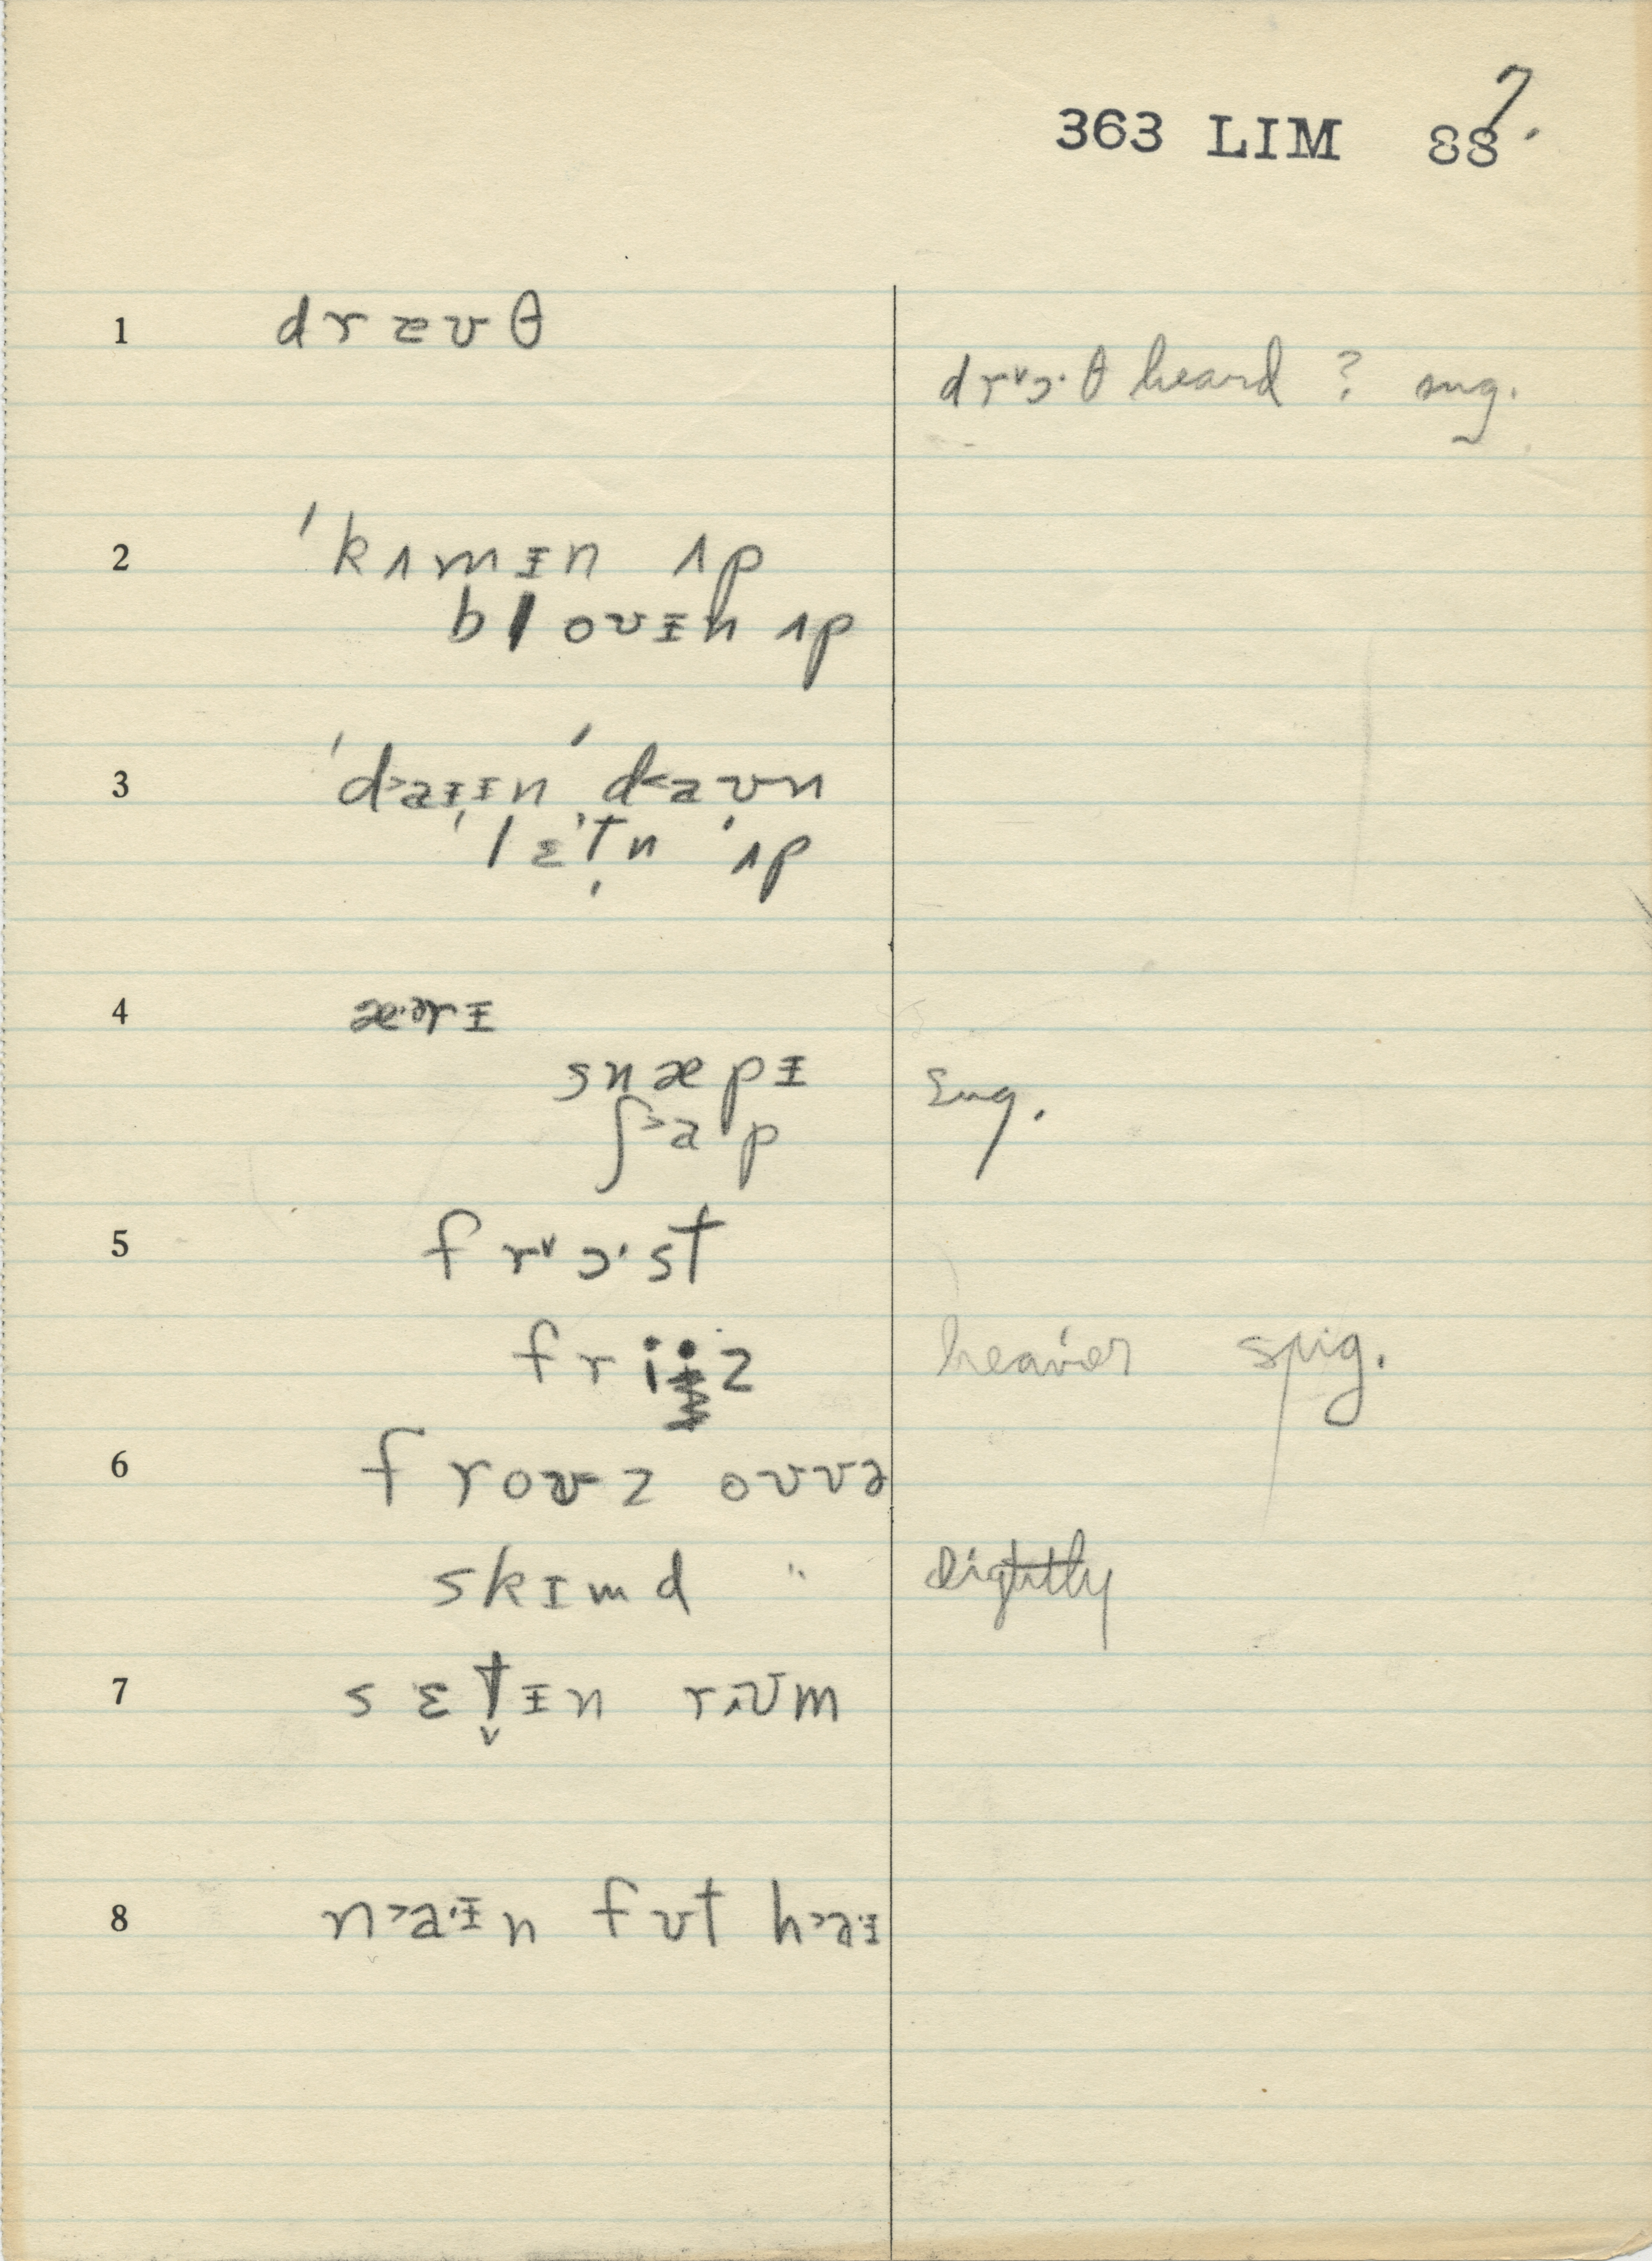 363 LIM 88 7.
1 dræʊθ
drˇɔ·θ heard ? sug.
2 'kʌmɪ̵n ʌp
bloʊɪ̵n ʌp
3 'd>aɪ̵ɪ̵n 'd<aʊn
'lɛt̬n 'ʌp
4 æ·ɚrɪ̵
snæpɪ̵ sug.
ʃ>aˑp
5 frˇɔ·st
friɨz heavier spig.
6 froʊz oʊvə
skɪmd " lightly
7 sɛt̬ɪ̵n rʌʊm
8 n>a·ɪ̵n fʊt h>a·ɪ̵